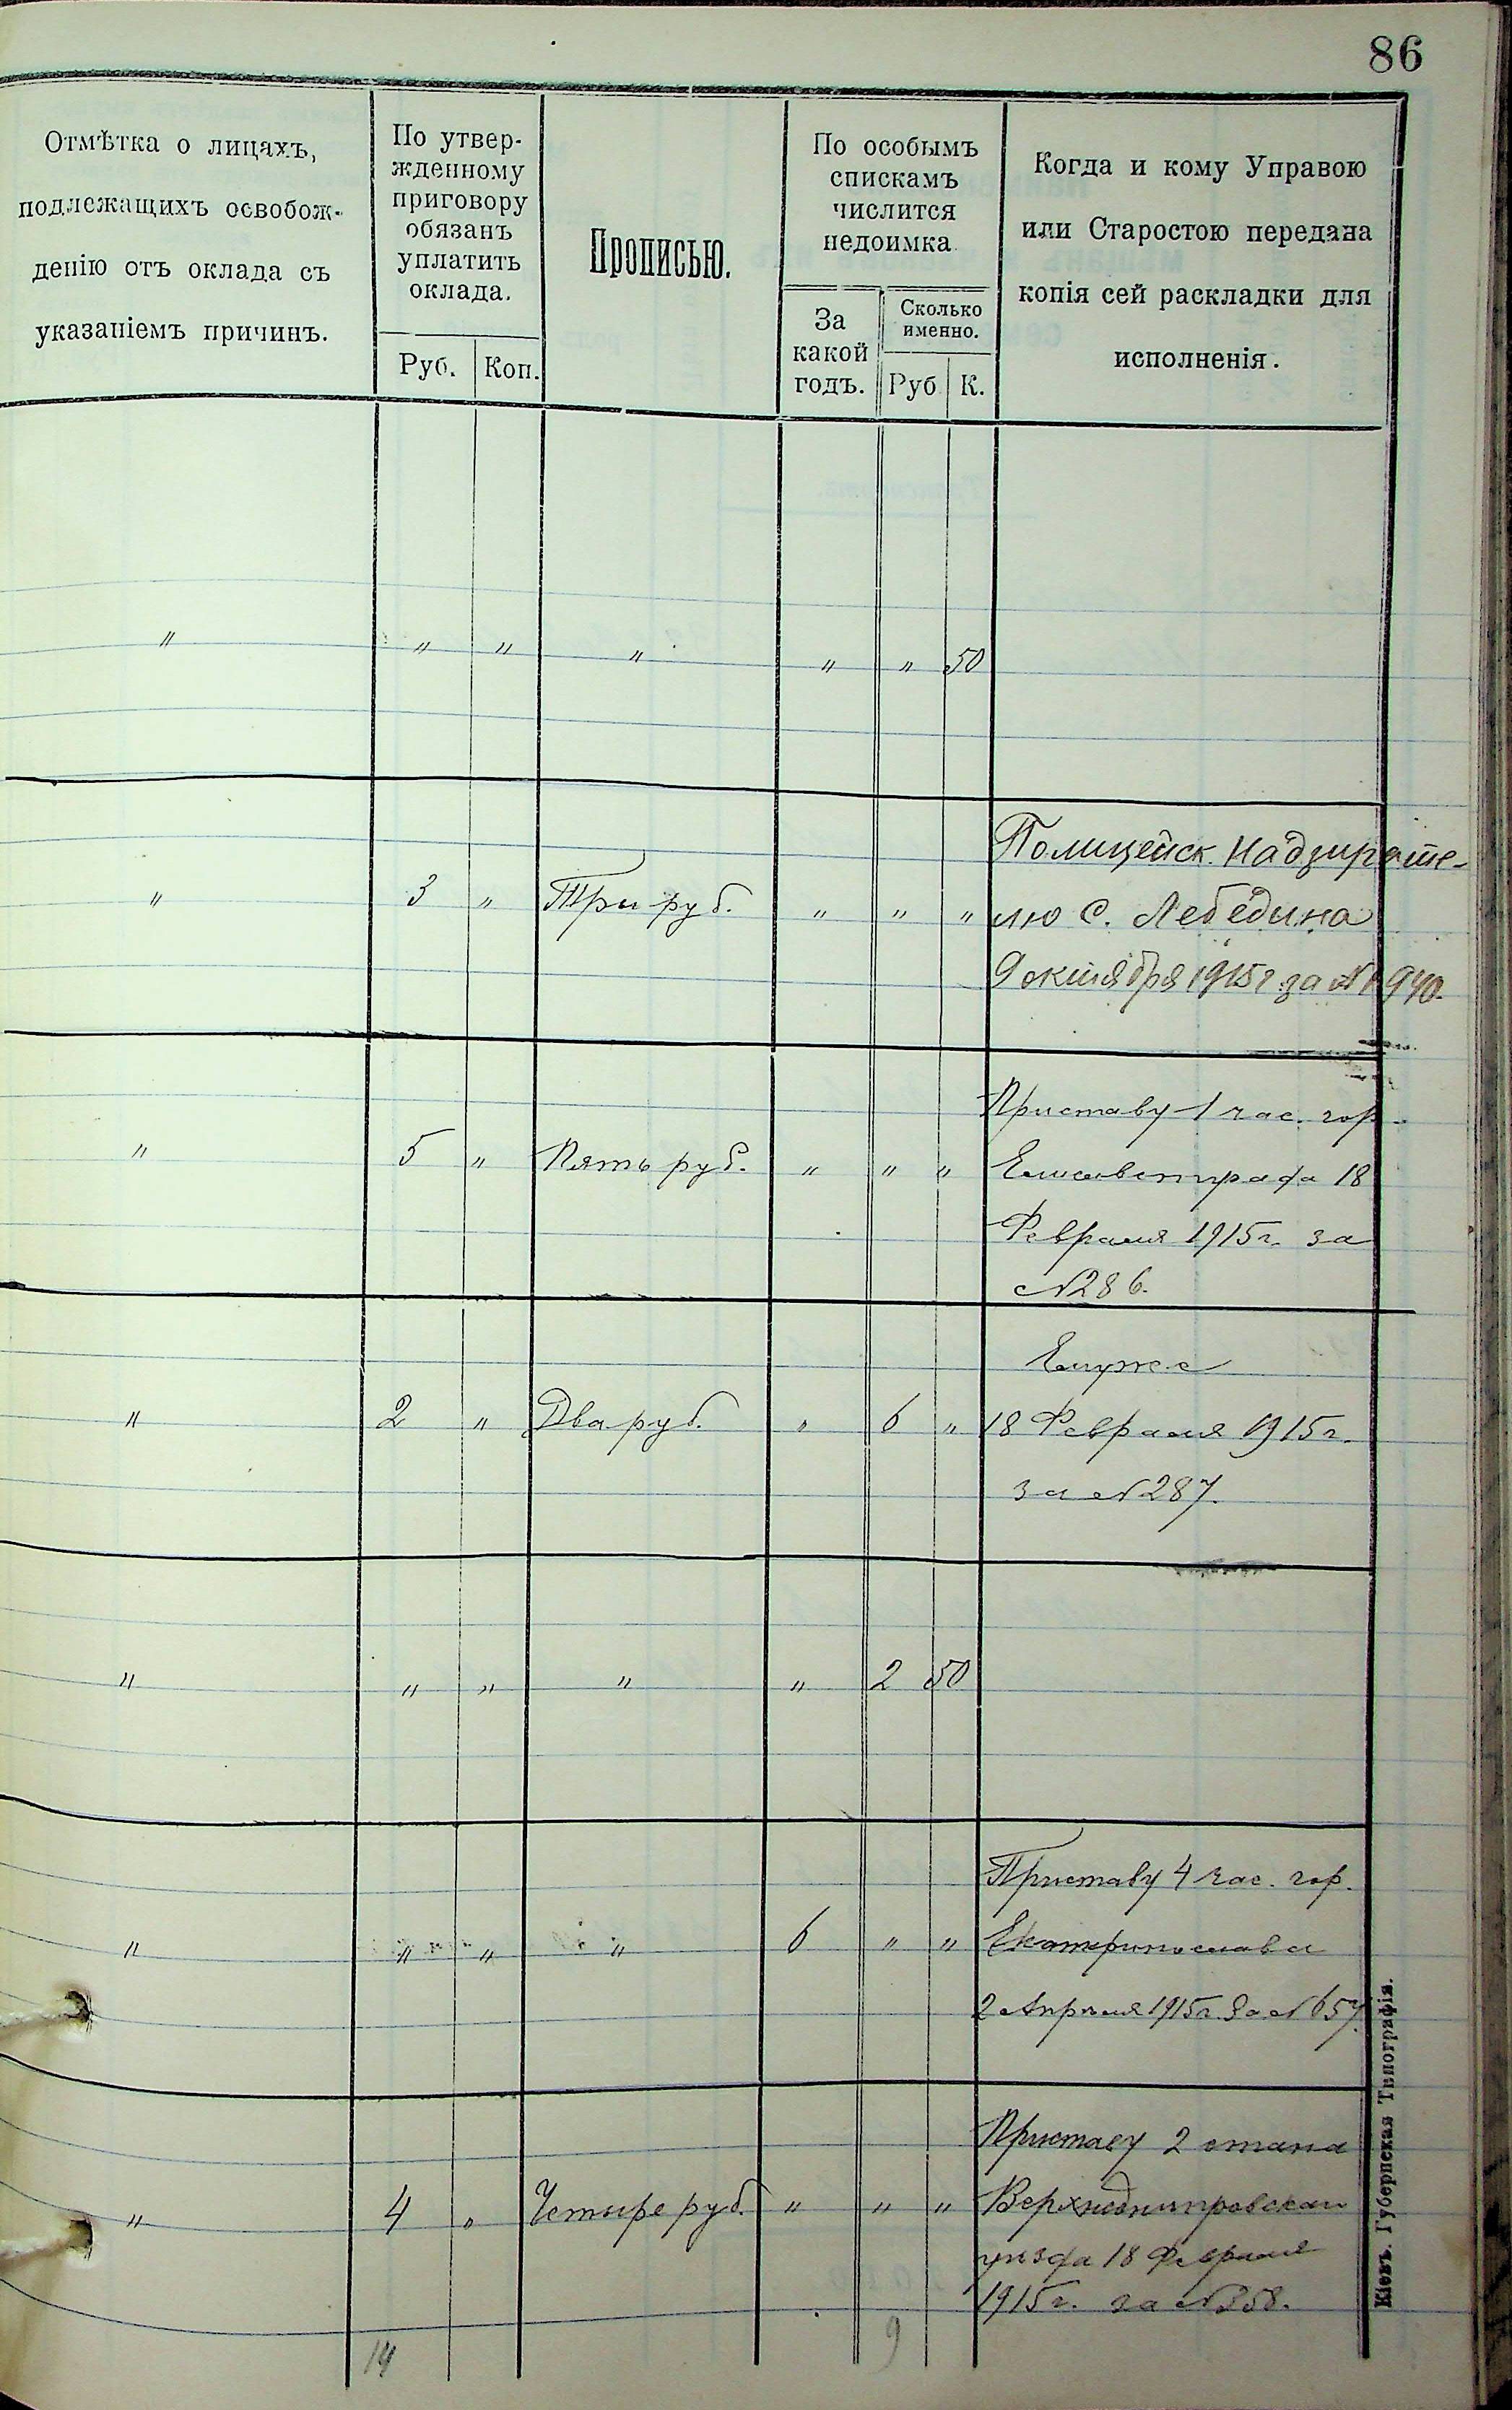 86
Отмѣтка о лицахъ,
подлежащихъ освобож-
денію отъ оклада съ
указаніемъ причинъ.
По утвер-
жденному
приговору
обязанъ
уплатить
оклада.
Руб. Коп.
Прописью.
По особымъ
спискамъ
числится
недоимка
За
какой
годъ.
Сколько
именно.
Руб К.
Когда и кому Управою
или Старостою передана
копія сей раскладки для
исполненія.
" " " " " " 50
Полицейск. Надзирате-
" 3 " Три руб. " " " лю С. Лебедина
9 октября 1915 г. за № 1940.
Приставу 1 час. гор.
" 5 " Пять руб. " " " Елисаветграда 18
Февраля 1915 г. за
№ 286.
Ему же
" 2 " Два руб. " 6 " 18 Февраля 1915 г.
за № 287.
" " " " " 2 50
Приставу 4 час. гор.
" " " " 6 " " Екатеринослава
2 Апреля 1915 г. За № 657.
Приставу 2 стана
" 4 " Четыре руб. " " " Верхнеднипровскаго
уизда 18 Февраля
1915 г. за № 358.
14 9
Кіевъ. Губернская Типографія.